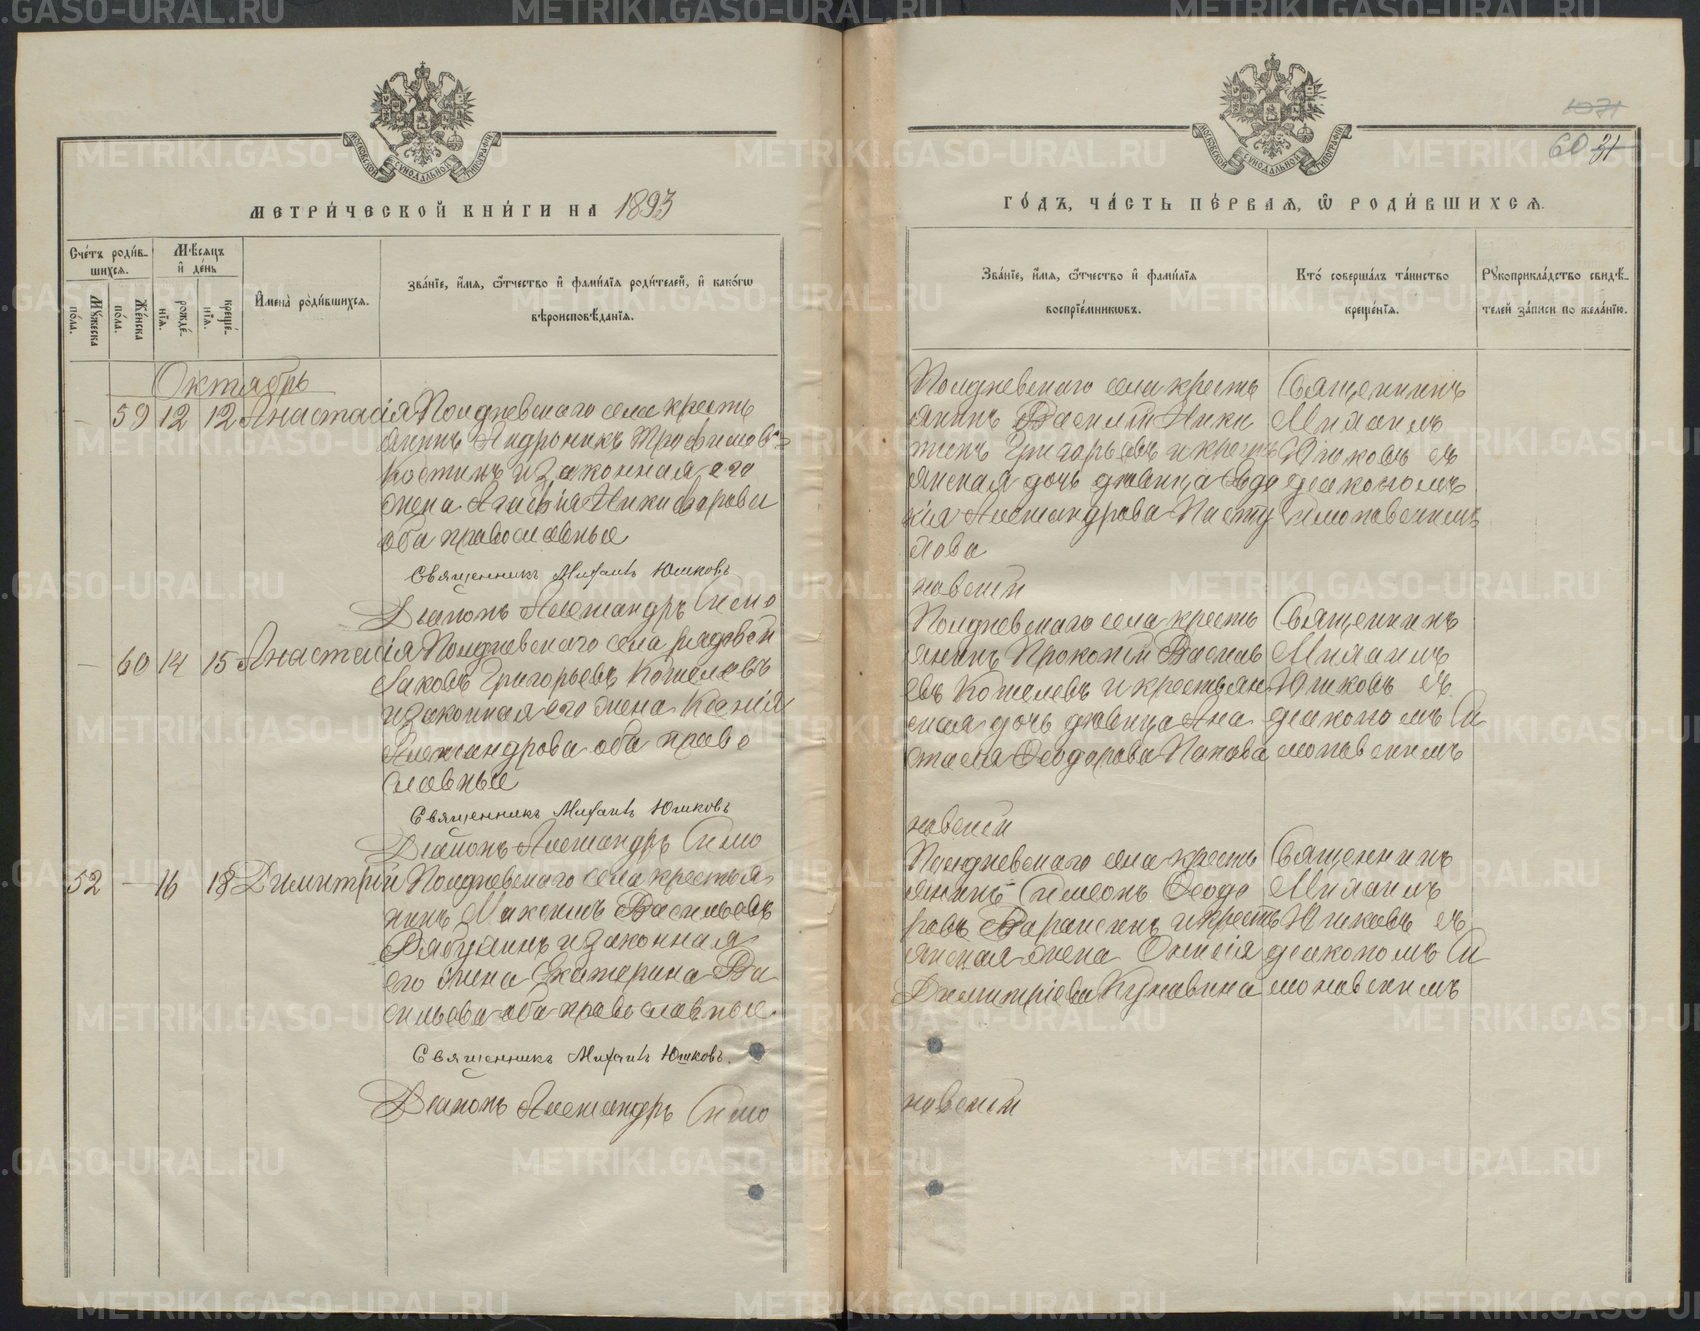 МЕТРИ́ЧЕСКОЙ КНИ́ГИ НА 1893
Сче́тъ роди́в-
шихся.
Мѣ́сяцъ
и҆ де́нь
Мꙋ́жеска
по́ла.
Же́нска
по́ла.
рожде́-
нїѧ.
креще́-
нїѧ.
И҆мена̀ роди́вшихся.
Зва́нїе, и҆́мя, ѻ҆́тчество и҆ фами́лїя роди́телей, и҆ како́гѡ
вѣроисповѣ́данїя.
Октябрь
- 59 12 12 Анастасія Полдневскаго села кресть
янинъ Андроникъ Трофимовъ
Костинъ и законная его
жена Агаѳія Никифорова
оба православные
Священникъ Михаилъ Юшковъ
Діаконъ Александръ Симо
- 60 14 15 Анастасія Полдневскаго села рядовой
Іаковъ Григорьевъ Кошелевъ
и законная его жена Ксенія
Александрова оба право
славные
Священникъ Михаилъ Юшковъ
Діаконъ Александръ Симо
52 - 16 18 Димитрій Полдневскаго села крестья
нинъ Максимъ Васильевъ
Рябухинъ и законная
его жена Екатерина Ва
сильева оба православные
Священникъ Михаилъ Юшковъ.
Діаконъ Александръ Симо
МОСКОВСКОЙ СѴНОДАЛЬНОЙ ТИПОГРАФІИ
60
ГО́ДЪ, ЧА́СТЬ ПЕ́РВАЯ, Ѡ҆ РОДИ́ВШИХСЯ.
Зва́нїе, и҆́мя, ѻ҆́тчество и҆ фами́лїя
воспрїе́мникѡвъ.
Кто̀ соверша́лъ та́инство
креще́нїя.
Рꙋкоприкла́дство свидѣ́-
телей за́писи по жела́нїю.
Полдневскаго села кресть
янинъ Василій Ники
тинъ Григорьевъ и кресть
янская дочь дѣвица Евдо
кія Александрова Пасту
хова
Священникъ
Михаилъ
Юшковъ съ
діакономъ
Симоновскимъ
новскій
Полдневскаго села кресть
янинъ Прокопій Василь
евъ Кошелевъ и крестьян
ская дочь дѣвица Ана
стасія Ѳеодорова Попова
Священникъ
Михаилъ
Юшковъ съ
діакономъ Си
моновскимъ
новскій
Полдневскаго села кресть
янинъ Симеонъ Ѳеодо
ровъ Вараксинъ и кресть
янская жена
Димитріева Кунавина
Священникъ
Михаилъ
Юшковъ съ
діакономъ Си
моновскимъ
новскій
МОСКОВСКОЙ СѴНОДАЛЬНОЙ ТИПОГРАФІИ
METRIKI.GASO-URAL.RU